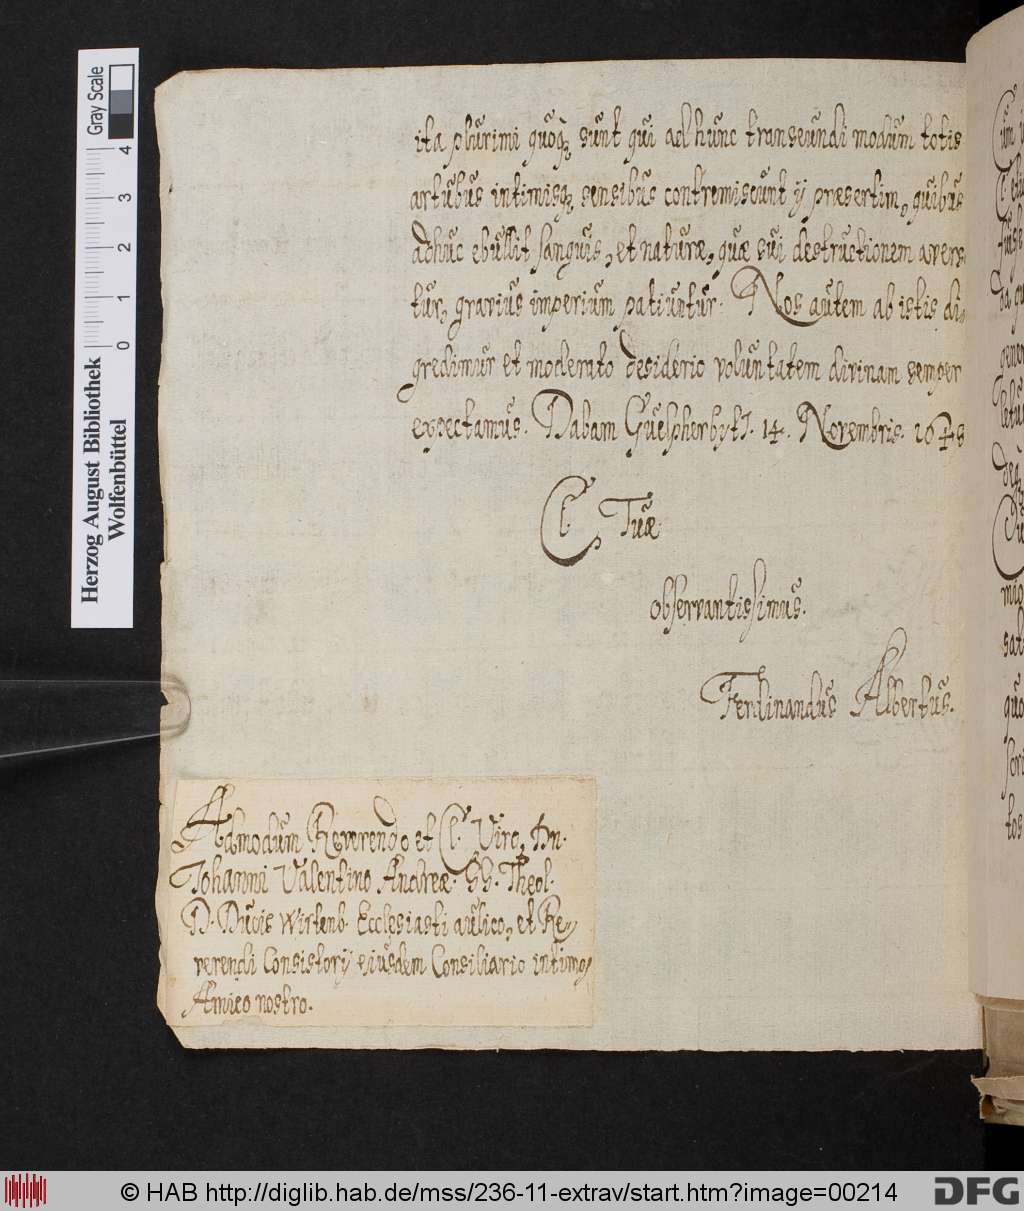 ita plurimi quoq̃ sunt qui ad hunc transeundi modum totis
artubus intimisq̃ sensibus contremiscunt ij præsertim, quibus
adhuc ebullit sanguis, et naturæ, quæ sui destructionem avers
tur, gravius imperium patiuntur. Nos autem ab istis di,,
gredimur et moderato desiderio voluntatem divinam semper
expectamus. Dabam Guelpherbyti. 14. Novembris. 1648
Cl. Tuæ
observantissimus.
Ferdinandus Albertus.
Admodum Reverendo et Cl. Viro, Dn.
Johanni Valentino Andreæ. SS. Theol.
D. Ducis Wirtenb. Ecclesiasti aulico, et Re,,
verendi Consistorij ejusdem Consiliario intimo,
Amico nostro.
Gray Scale
0 1 2 3 4
Herzog August Bibliothek
Wolfenbüttel
© HAB http://diglib.hab.de/mss/236-11-extrav/start.htm?image=00214
DFG